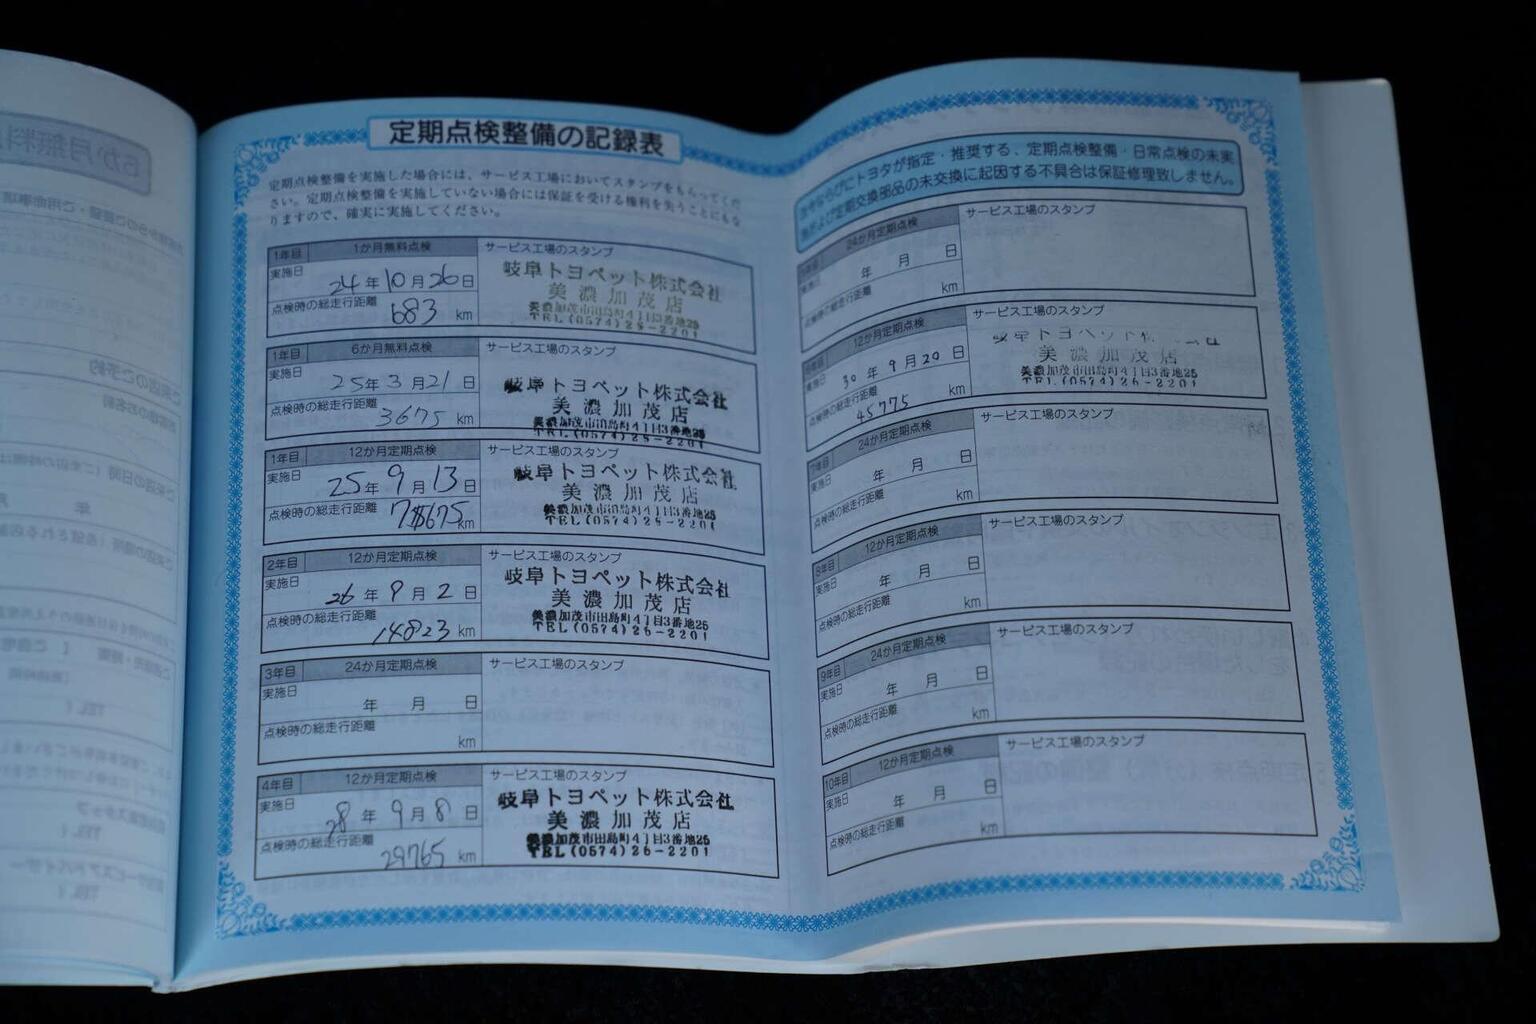 定期点検整備の記録表
定期点検整備を実施した場合には、サービス工場においてスタンプをもらってくだ
さい。定期点検整備を実施していない場合には保証を受ける権利を失うことにもな
りますので、確実に実施してください。
1年目 1か月無料点検 サービス工場のスタンプ
実施日 24年10月26日
点検時の総走行距離 683 km
岐阜トヨペット株式会社
美濃加茂店
美濃加茂市田島町4丁目3番地25
TEL(0574)26-2201
1年目 6か月無料点検 サービス工場のスタンプ
実施日 25年3月21日
点検時の総走行距離 3675 km
岐阜トヨペット株式会社
美濃加茂店
美濃加茂市田島町4丁目3番地25
TEL(0574)26-2201
1年目 12か月定期点検 サービス工場のスタンプ
実施日 25年9月13日
点検時の総走行距離 km
岐阜トヨペット株式会社
美濃加茂店
美濃加茂市田島町4丁目3番地25
TEL(0574)26-2201
2年目 12か月定期点検 サービス工場のスタンプ
実施日 26年9月2日
点検時の総走行距離 14823 km
岐阜トヨペット株式会社
美濃加茂店
美濃加茂市田島町4丁目3番地25
TEL(0574)26-2201
3年目 24か月定期点検 サービス工場のスタンプ
実施日 年 月 日
点検時の総走行距離 km
4年目 12か月定期点検 サービス工場のスタンプ
実施日 28年9月8日
点検時の総走行距離 29765 km
岐阜トヨペット株式会社
美濃加茂店
美濃加茂市田島町4丁目3番地25
TEL(0574)26-2201
法令ならびにトヨタが指定・推奨する、定期点検整備・日常点検の未実
施および定期交換部品の未交換に起因する不具合は保証修理致しません。
5年目 24か月定期点検 サービス工場のスタンプ
実施日 年 月 日
点検時の総走行距離 km
6年目 12か月定期点検 サービス工場のスタンプ
実施日 30年9月20日
点検時の総走行距離 45775 km
岐阜トヨペット株式会社
美濃加茂店
美濃加茂市田島町4丁目3番地25
TEL(0574)26-2201
7年目 24か月定期点検 サービス工場のスタンプ
実施日 年 月 日
点検時の総走行距離 km
8年目 12か月定期点検 サービス工場のスタンプ
実施日 年 月 日
点検時の総走行距離 km
9年目 24か月定期点検 サービス工場のスタンプ
実施日 年 月 日
点検時の総走行距離 km
10年目 12か月定期点検 サービス工場のスタンプ
実施日 年 月 日
点検時の総走行距離 km